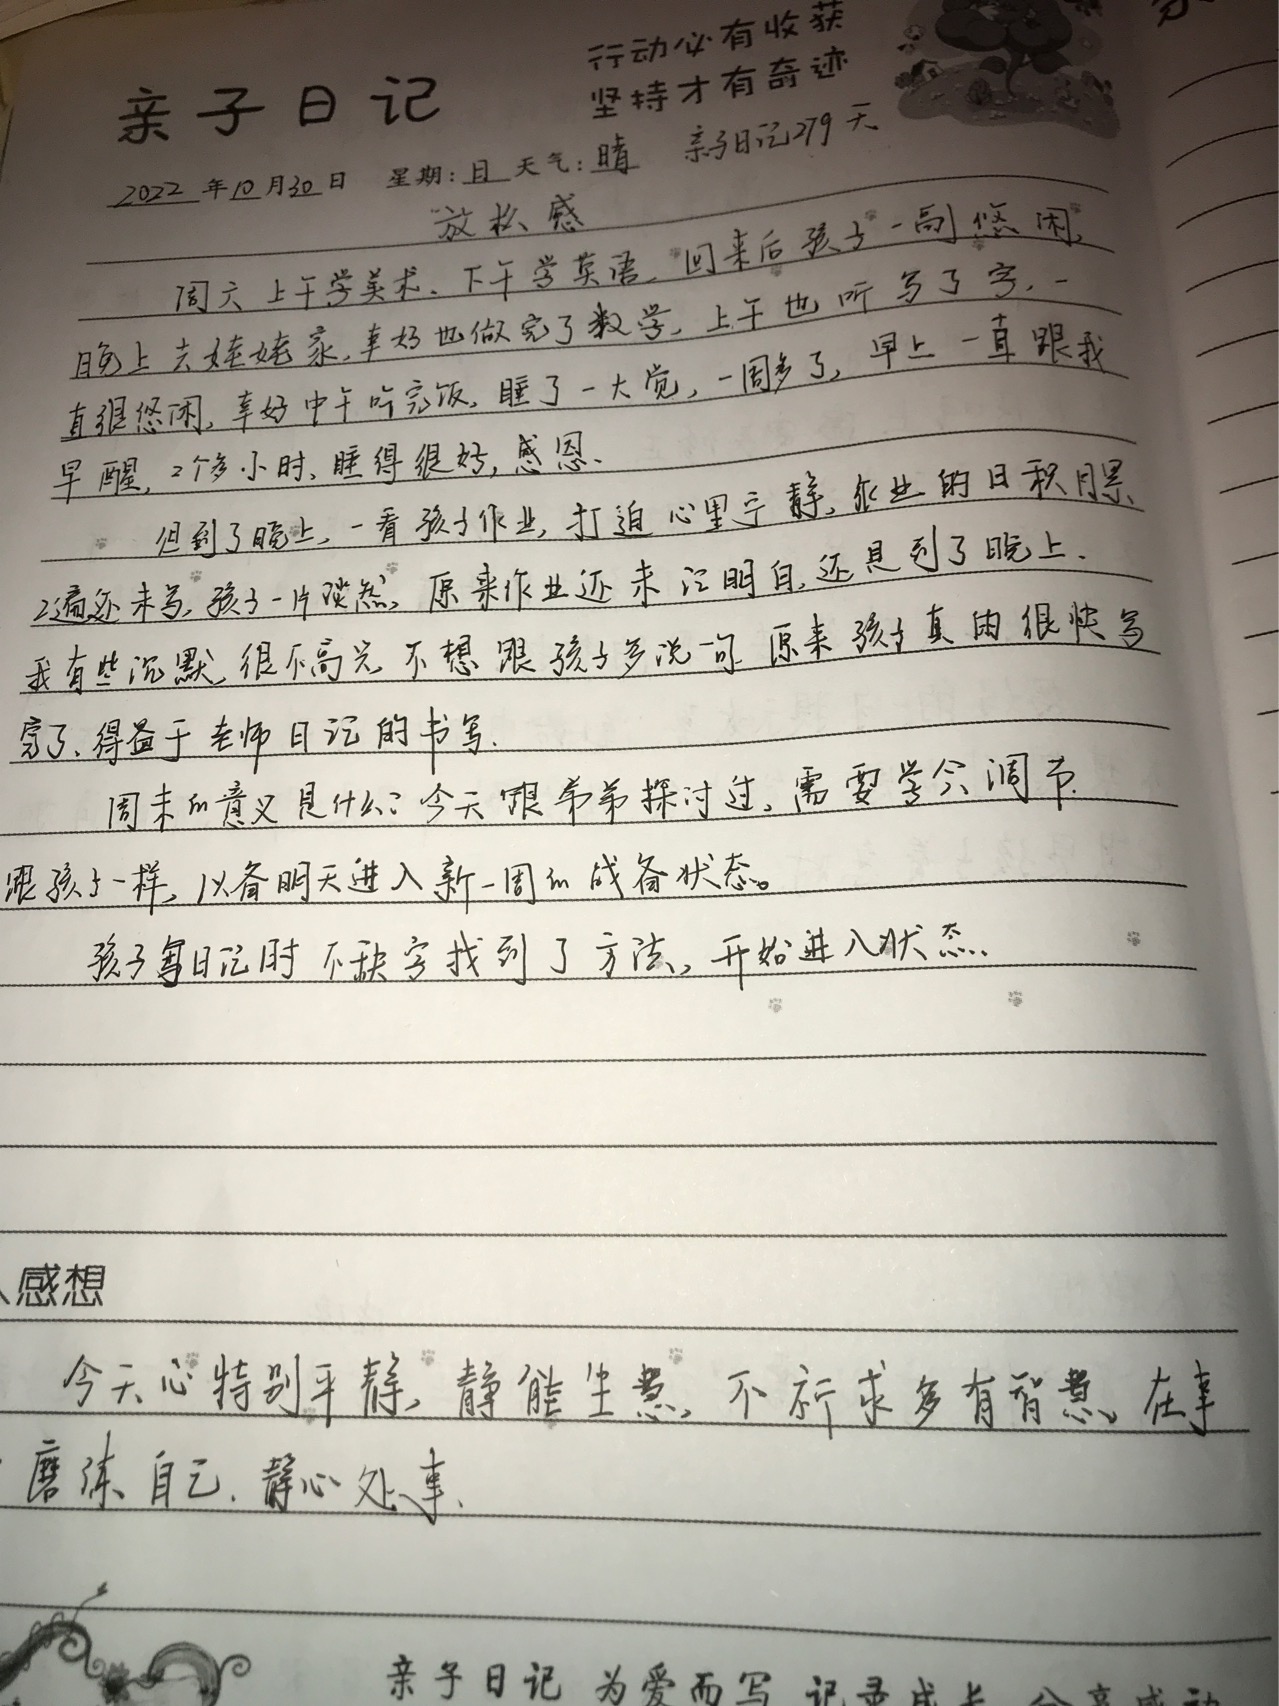 行动必有收获
坚持才有奇迹
亲子日记
亲子日记279天
2022年10月30日 星期:日 天气:晴
放松感
周六上午学美术、下午学英语,回来后孩子一副悠闲,
晚上去姥姥家,幸好也做完了数学,上午也听写了字,一
直很悠闲,幸好中午吃完饭,睡了一大觉,一周多了,早上一直跟我
早醒,2个多小时、睡得很好,感恩、
但到了晚上,一看孩子作业,打迫心里宁静,作业的日积月累、
2遍还未写,孩子一片淡然,原来作业还未记明白,还是到了晚上.
我有些沉默,很不高兴 不想跟孩子多说一句 原来孩子真的很快写
完了、得益于老师日记的书写.
周末的意义是什么?今天跟弟弟探讨过,需要学会调节.
跟孩子一样,以备明天进入新一周的战备状态。
孩子写日记时不缺字找到了方法,开始进入状态..
感想
今天心特别平静,静能生慧,不祈求多有智慧,在事
磨练自己.静心处事.
亲子日记 为爱而写 记录成长